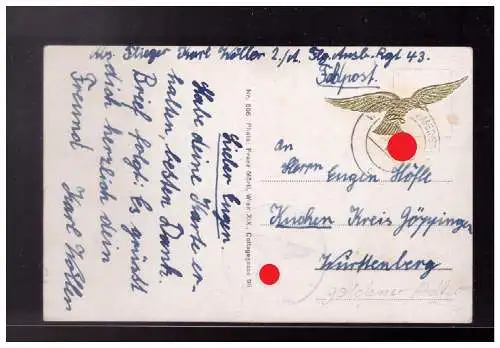 Abs. Flieger Karl Zöller 2./A. Flg. Ausb.-Rgt 43.
Feldpost.
Lieber Eugen.
Habe deine Karte er-
halten, besten Dank.
Brief folgt. Es grüsst
dich herzlich dein
Freund
Karl Zöller
Nr. 506. Photo Franz Mörtl, Wien XIX., Cottagegasse
An
Herrn Eugen
Kuchen Kreis Göppingen
Württenberg
goldener